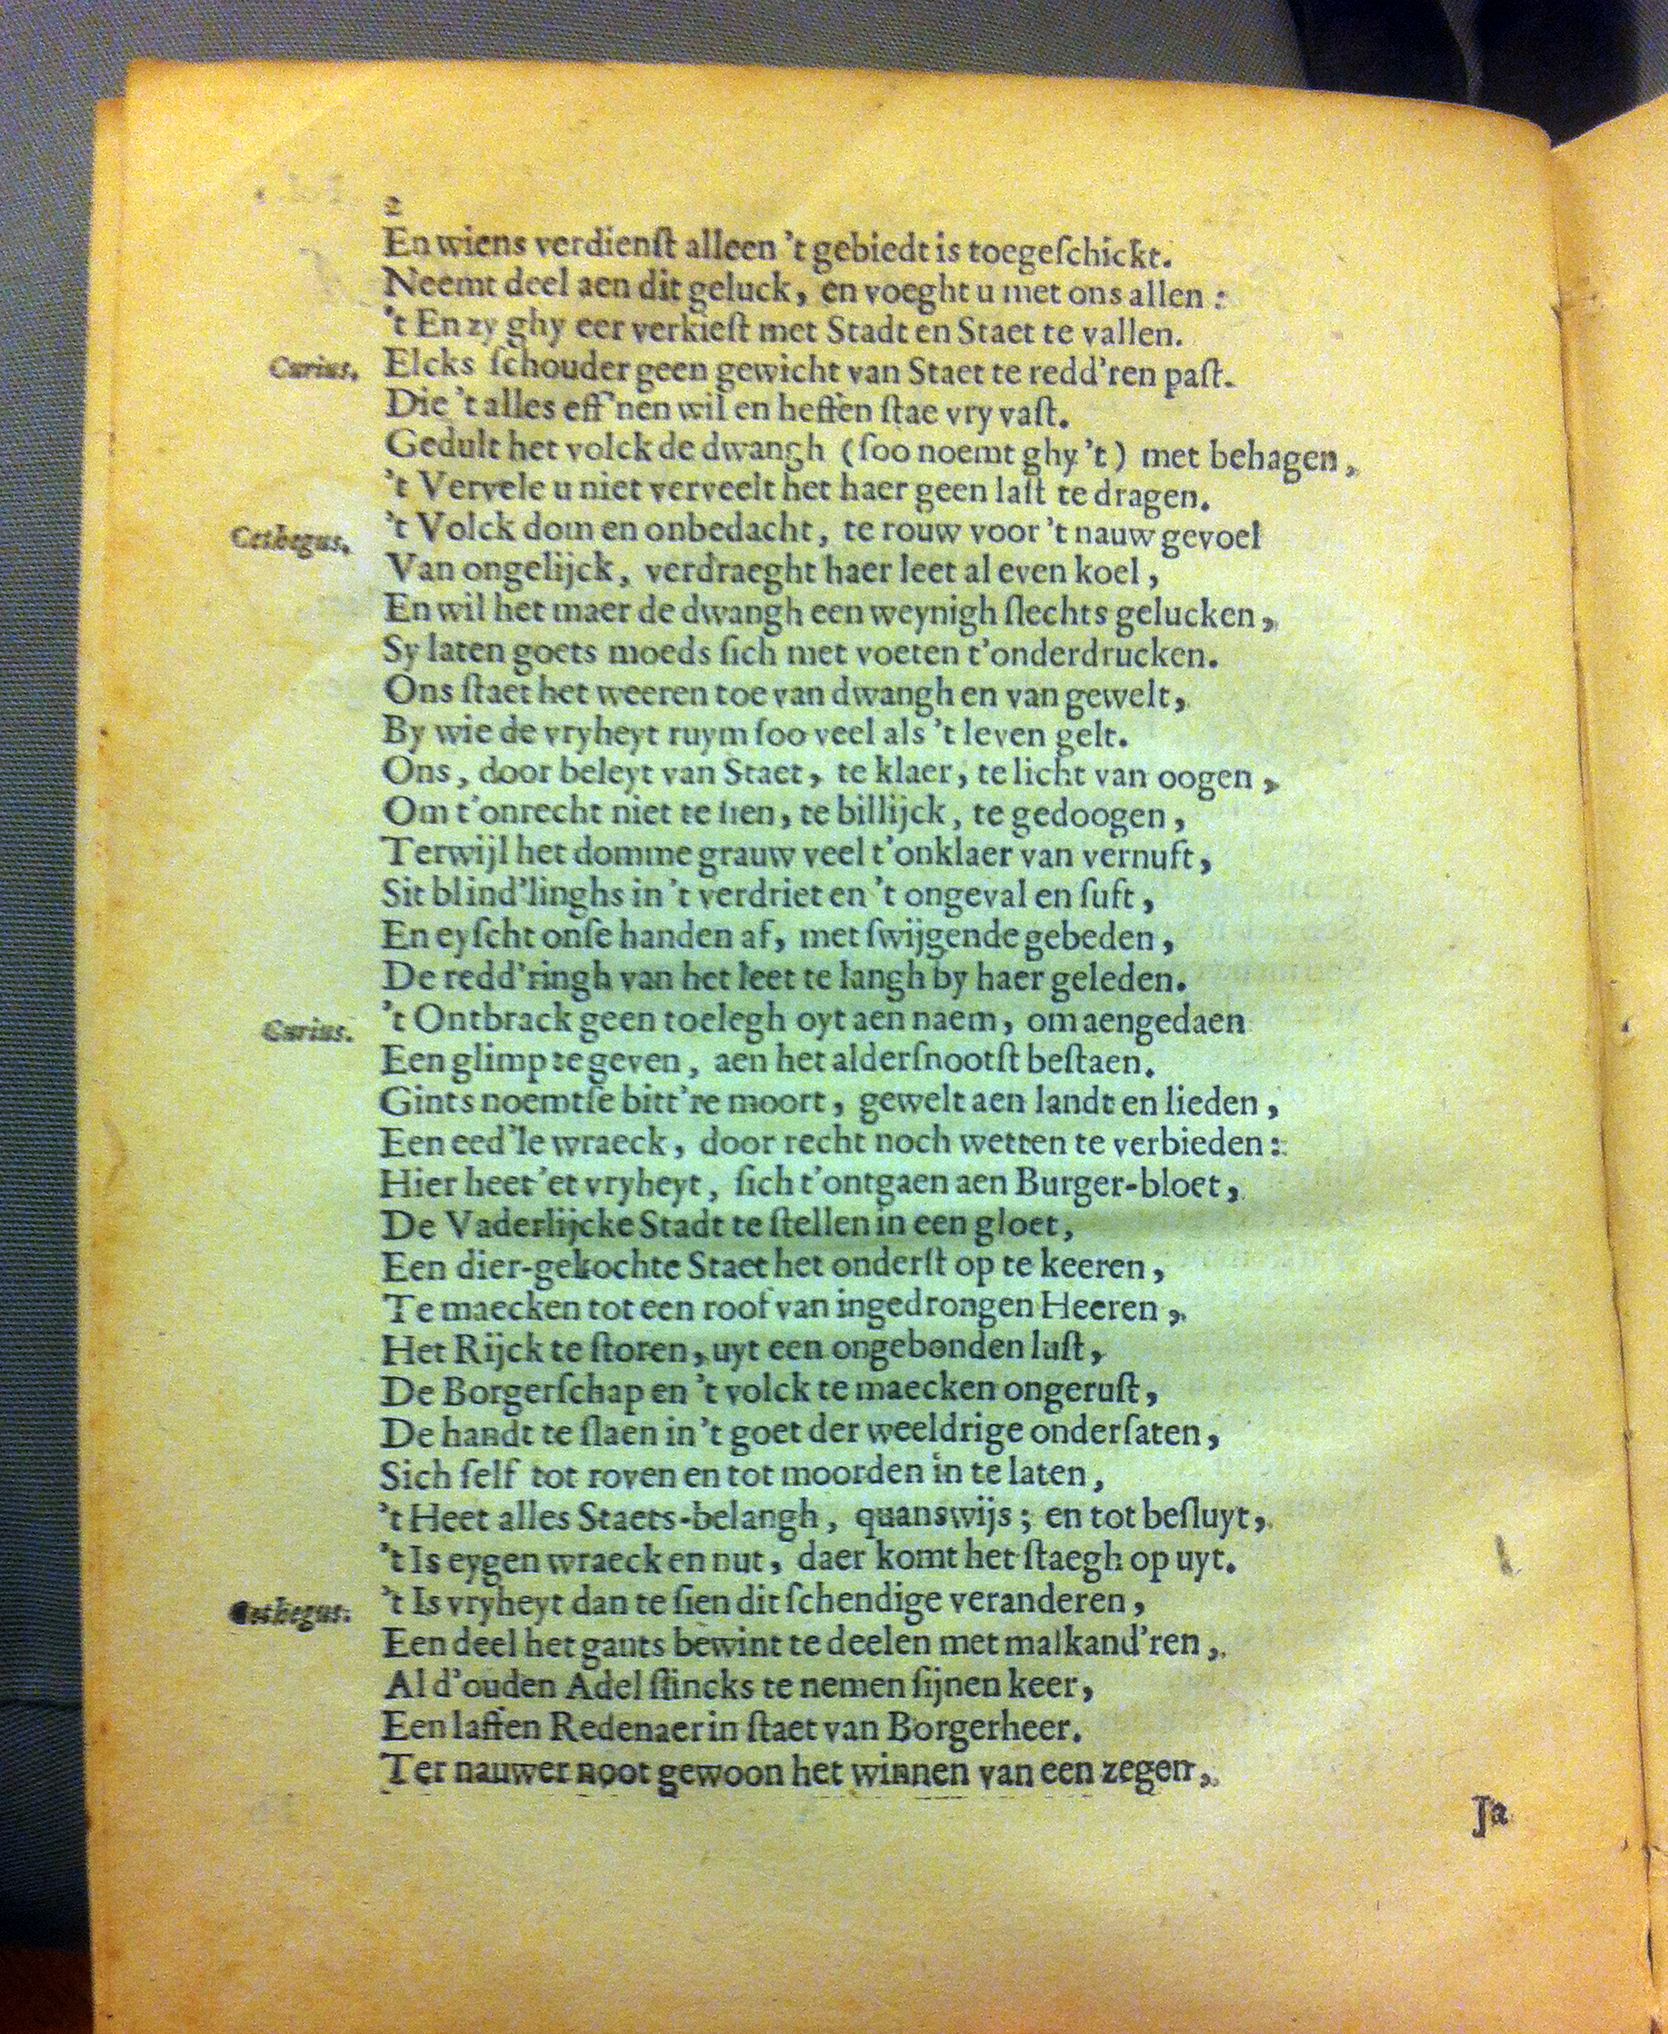 2
En wiens verdienſt alleen 't gebiedt is toegeſchickt.
Neemt deel aen dit geluck, en voeght u met ons allen:
't En zy ghy eer verkieſt met Stadt en Staet te vallen.
Curius. Elcks ſchouder geen gewicht van Staet te redd'ren paſt.
Die 't alles eff'nen wil en heffen ſtae vry vaſt.
Gedult het volck de dwangh (ſoo noemt ghy 't) met behagen,
't Vervele u niet verveelt het haer geen laſt te dragen.
Cethegus. 't Volck dom en onbedacht, te rouw voor 't nauw gevoel
Van ongelijck, verdraeght haer leet al even koel,
En wil het maer de dwangh een weynigh ſlechts gelucken,
Sy laten goets moeds ſich met voeten t'onderdrucken.
Ons ſtaet het weeren toe van dwangh en van gewelt,
By wie de vryheyt ruym ſoo veel als 't leven gelt.
Ons, door beleyt van Staet, te klaer, te licht van oogen,
Om t'onrecht niet te ſien, te billijck, te gedoogen,
Terwijl het domme grauw veel t'onklaer van vernuft,
Sit blind'linghs in 't verdriet en 't ongeval en ſuft,
En eyſcht onſe handen af, met ſwijgende gebeden,
De redd'ringh van het leet te langh by haer geleden.
Curius. 't Ontbrack geen toelegh oyt aen naem, om aengedaen
Een glimp te geven, aen het alderſnootſt beſtaen.
Gints noemtſe bitt're moort, gewelt aen landt en lieden,
Een eed'le wraeck, door recht noch wetten te verbieden:
Hier heet'et vryheyt, ſich t'ontgaen aen Burger-bloet,
De Vaderlijcke Stadt te ſtellen in een gloet,
Een dier-gekochte Staet het onderſt op te keeren,
Te maecken tot een roof van ingedrongen Heeren,
Het Rijck te ſtoren, uyt een ongebonden luſt,
De Borgerſchap en 't volck te maecken ongeruſt,
De handt te ſlaen in 't goet der weeldrige onderſaten,
Sich ſelf tot roven en tot moorden in te laten,
't Heet alles Staets-belangh, quanswijs; en tot beſluyt,
't Is eygen wraeck en nut, daer komt het ſtaegh op uyt.
Cethegus. 't Is vryheyt dan te ſien dit ſchendige veranderen,
Een deel het gants bewint te deelen met malkand'ren,
Al d'ouden Adel ſlincks te nemen ſijnen keer,
Een laffen Redenaer in ſtaet van Borgerheer.
Ter nauwer noot gewoon het winnen van een zegen,
Ja